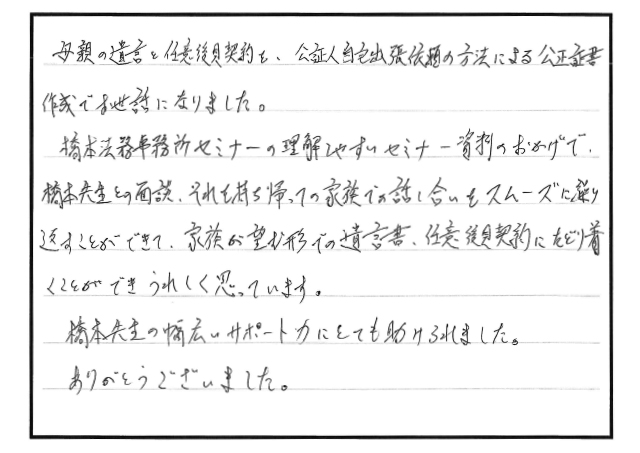 母親の遺言と任意後見契約を、公証人自宅出張依頼の方法による公正証書
作成でお世話になりました。
橋本法務事務所セミナーの理解しやすいセミナー資料のおかげで、
橋本先生との面談、それを持ち帰っての家族での話し合いをスムーズに繰り
返すことができて、家族が望む形での遺言書、任意後見契約にたどり着
くことができうれしく思っています。
橋本先生の幅広いサポート力にとても助けられました。
ありがとうございました。